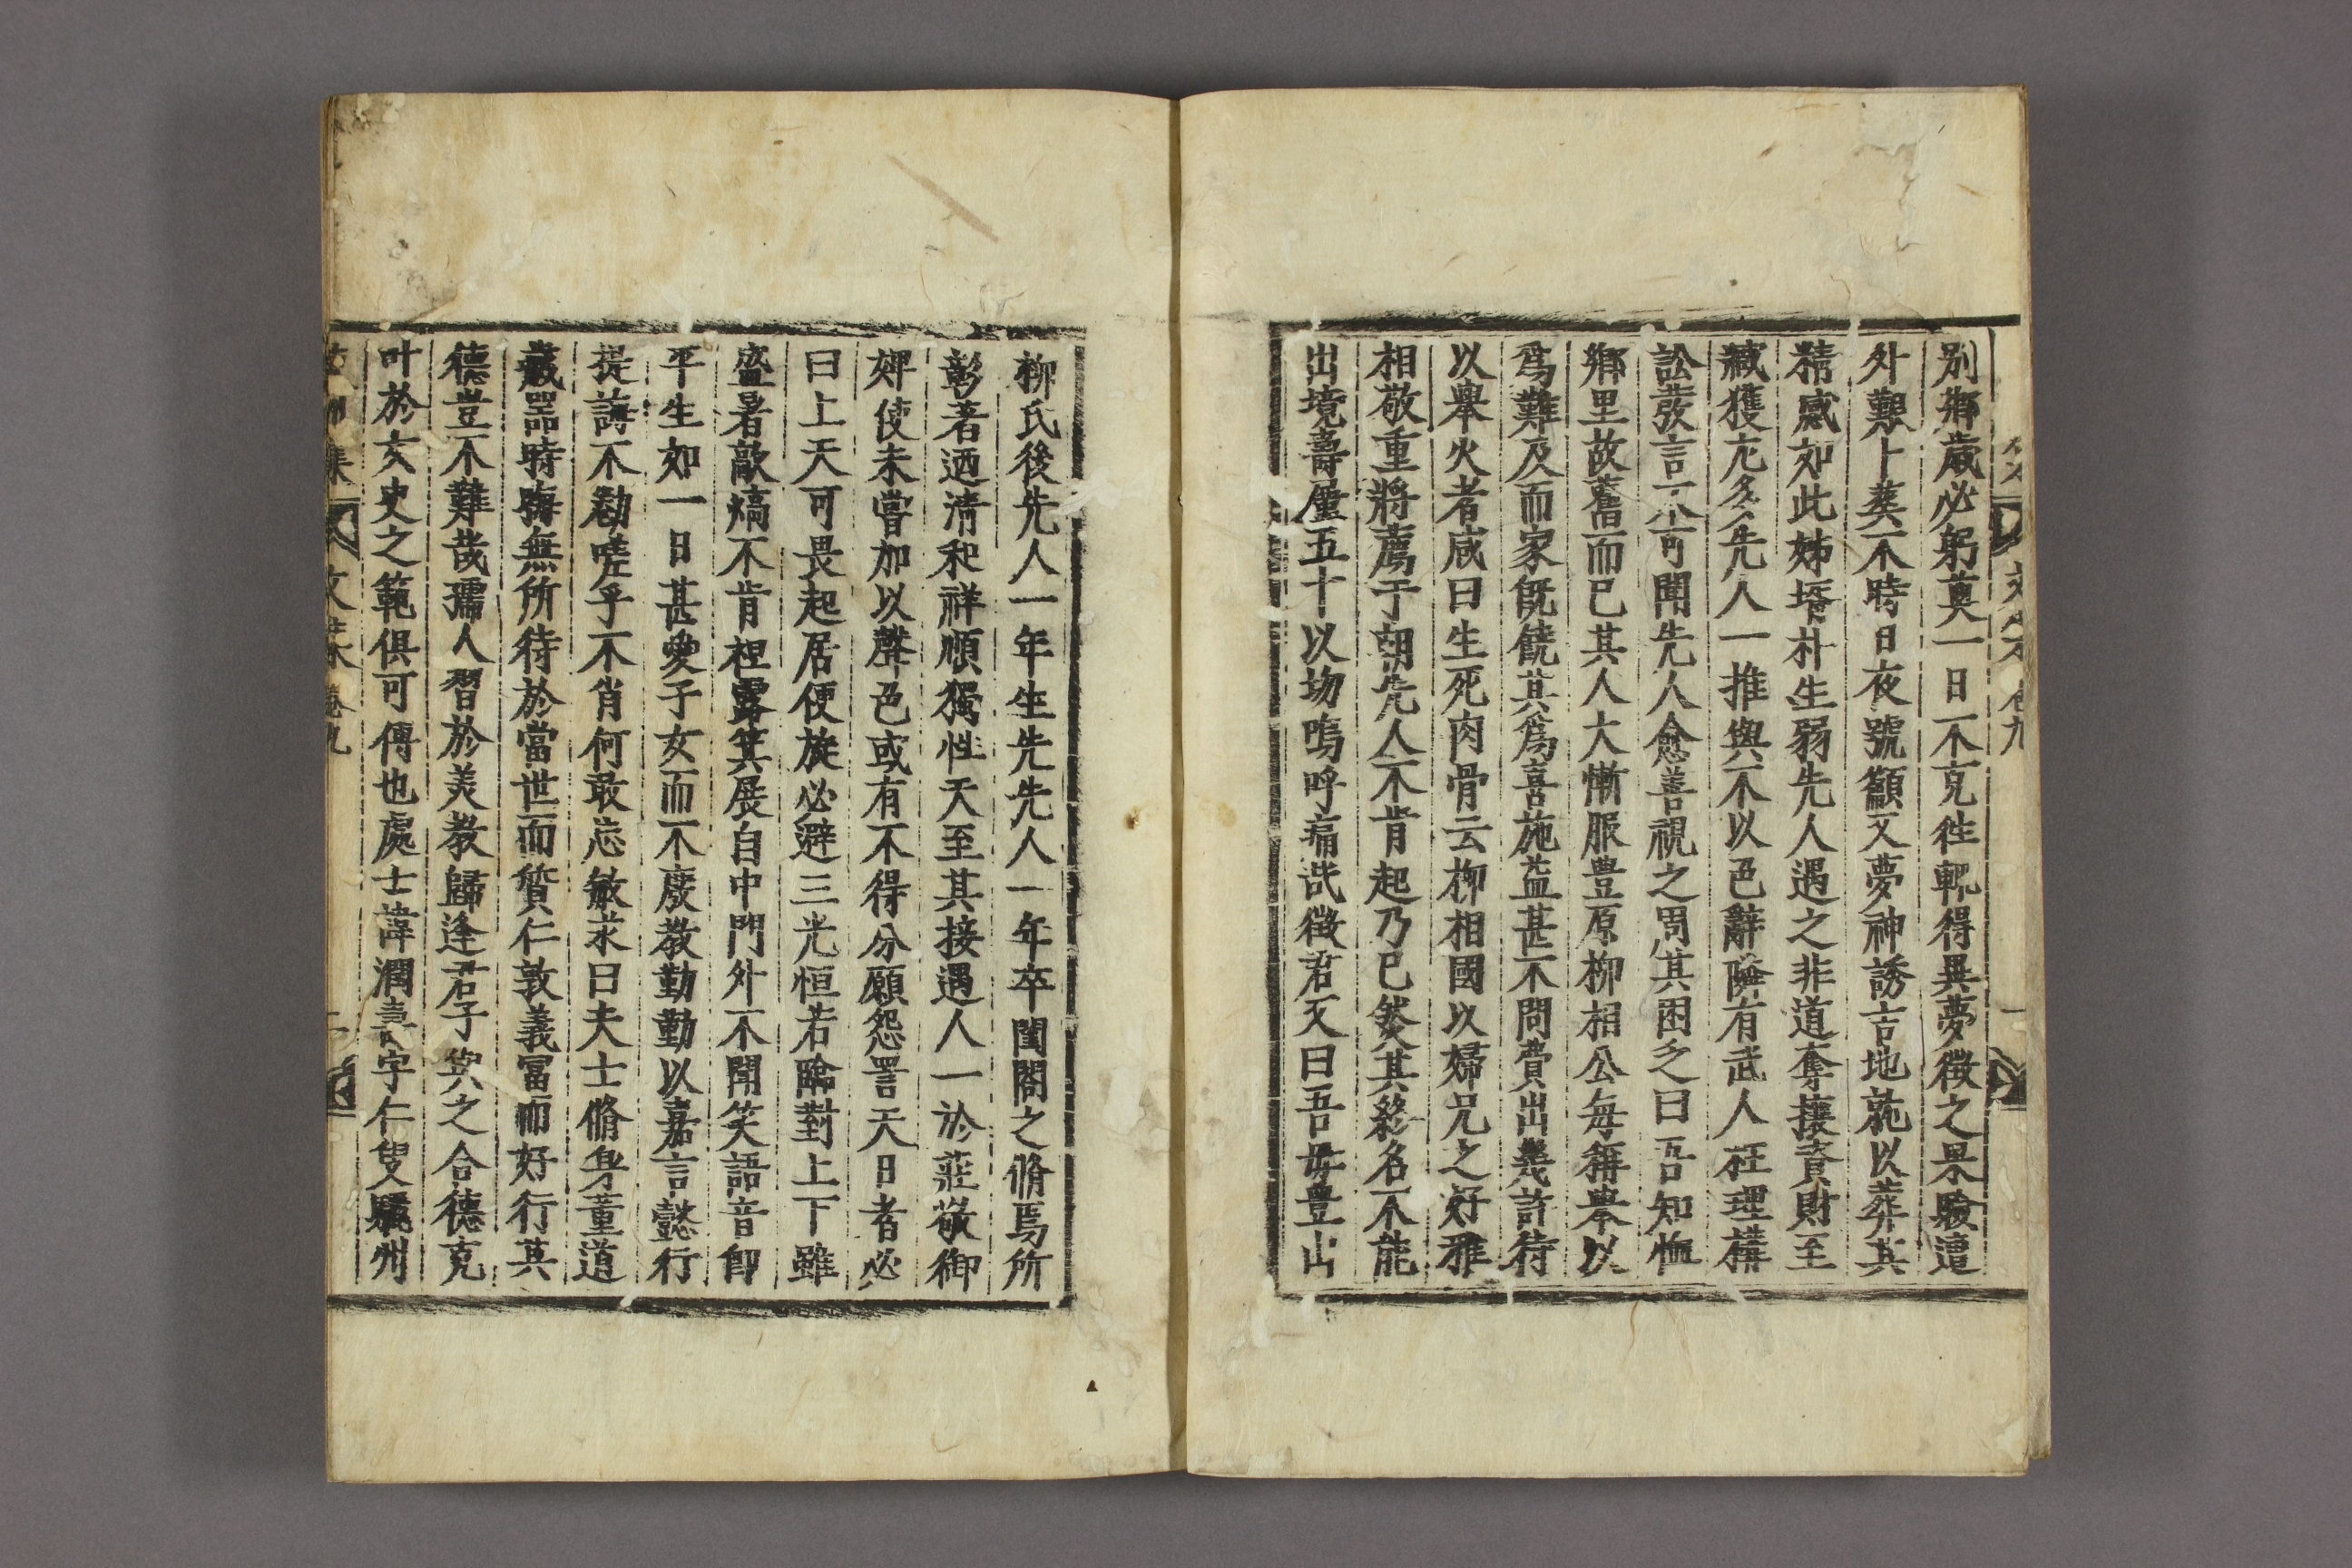 別鄕歲必躬奠一日不克徃輒得異夢徵之果驗遭
外艱卜葬不時日夜號籲又夢神誘吉地就以葬其
精感如此姊壻朴生弱先人遇之非道奪攘資財至
臧獲尤多先人一推與不以色辭隣有武人枉理構
訟發言不可聞先人愈善視之周其困乏曰吾知恤
鄕里故舊而已其人大慚服豊原柳相公每稱擧以
爲難及而家旣饒其爲喜施益甚不問費出幾許待
以擧火者咸曰生死肉骨云柳相國以婦兄之好雅
相敬重將薦于朝先人不肯起乃已然其終名不能
出境壽廑五十以歿嗚呼痛哉徵君又曰吾母豊山
柳氏後先人一年生先先人一年卒閨閤之脩焉所
彰著迺淸和祥順獨性天至其接遇人一於莊敬御
婢使未嘗加以聲色或有不得分願怨詈天日者必
曰上天可畏起居便旋必避三光恒若臨對上下雖
盛暑歊熇不肯裎露箕展白中門外不聞笑語音卽
平生如一日甚愛子女而不廢敎勤勤以嘉言懿行
提誨不勌嗟乎不肖何敢忘敏求曰夫士脩身蓳道
藏器時晦無所待於當世而質仁敦義冨而好行其
德豈不難哉孺人習於美敎歸逢君子箕之合德克
叶於女史之範俱可傳也處士諱潤壽字仁叟驪州
集 文集 卷九